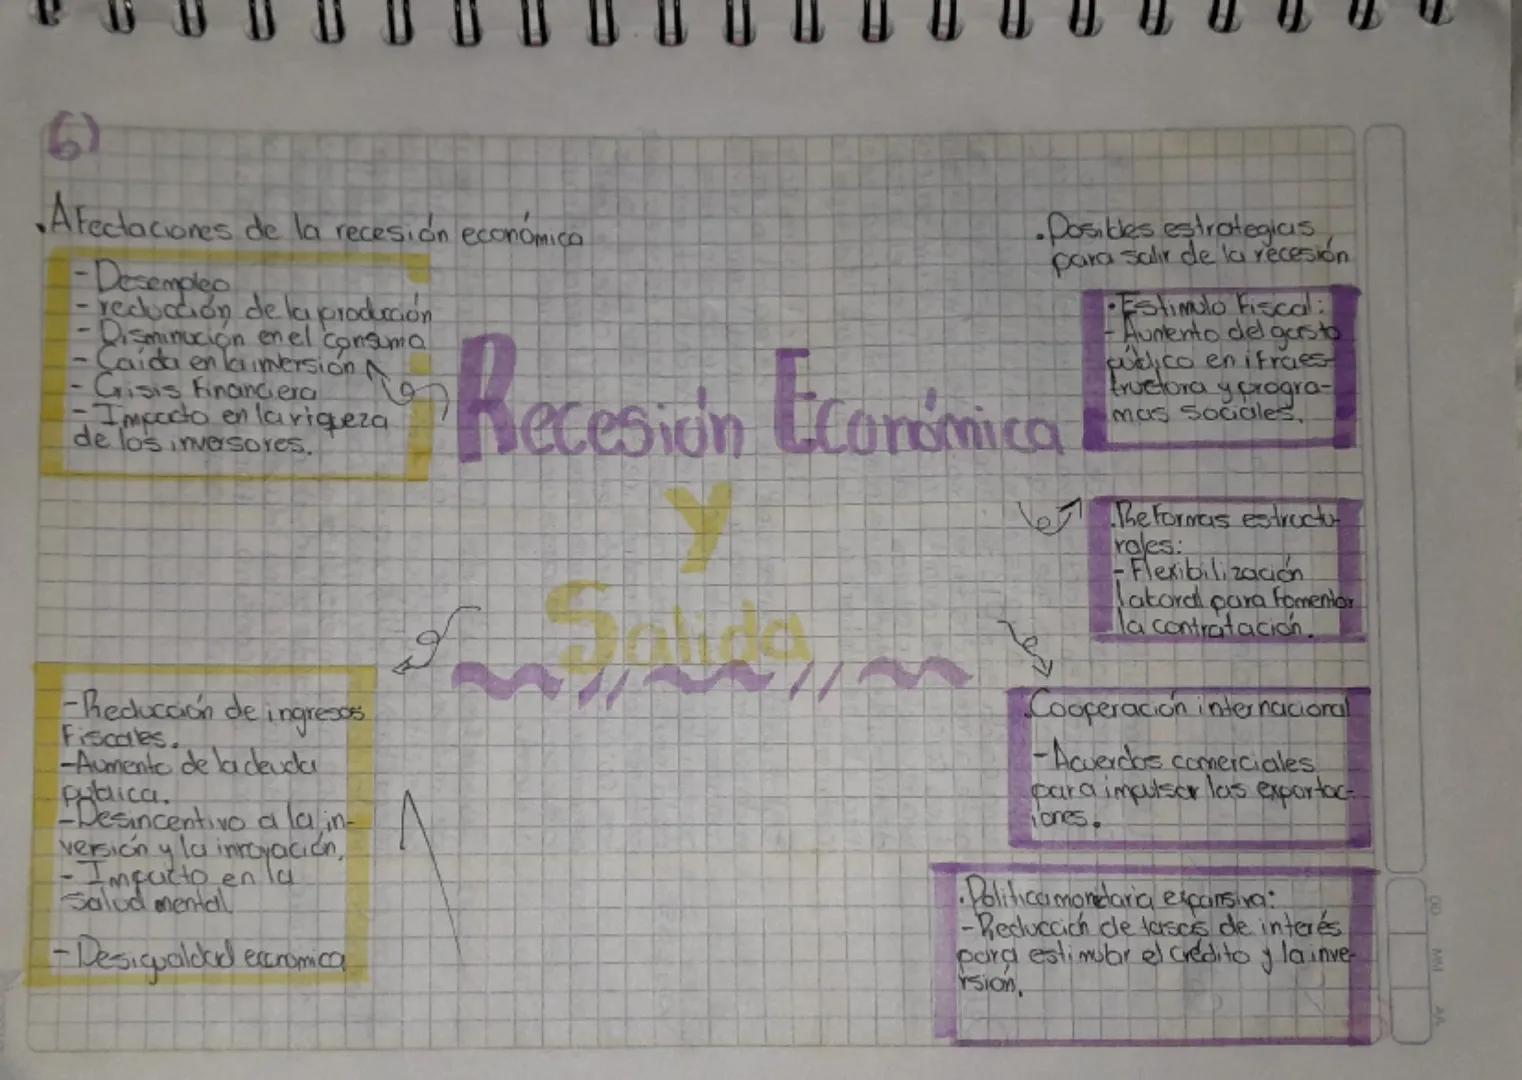 6)
.Afectaciones de la recesión económica
- Desempleo
- reducción de la producción
- Disminución en el consumo
- Caída en la inversión
- Crisis Financiera
- Impacto en la riqueza
de los inversores.
Recesión Económica
y
Salida
-Reducción de ingresos
Fiscales.
-Aumento de la deuda
publica.
-Desincentivo a la in-
versión y la innovación.
- Impacto en la
Salud mental
- Desigualdad economica
.Posibles estrategias
para salir de la recesión
·Estimulo Fiscal:
- Aumento del gasto
público en ifraes-
tructora y progra-
mas sociales.
.Reformas estructu-
rales:
-Flexibilización
laboral para Fomentar
la contratación.
.Cooperación internacional
-Acuerdos comerciales
para impulsar las exportac-
iones.
·Politica mondaria expansiva:
-Reducción de tasas de interés
para estimular el crédito y la inve-
rsión.
DD MM AA